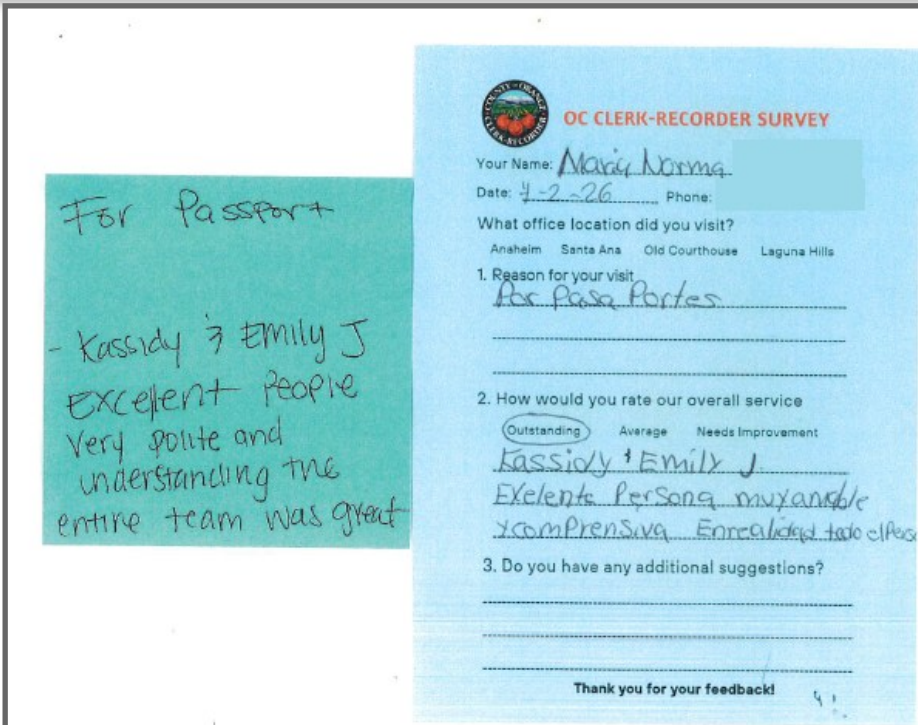 For Passport
- Kassidy & Emily J
Excellent People
Very polite and
understanding the
entire team was great
COUNTY OF ORANGE
CLERK-RECORDER
OC CLERK-RECORDER SURVEY
Your Name: Maria Norma
Date: 4-2-26 Phone:
What office location did you visit?
Anaheim Santa Ana Old Courthouse Laguna Hills
1. Reason for your visit
Por Pasa Portes
2. How would you rate our overall service
Outstanding Average Needs Improvement
Kassidy & Emily J.
Exelente Persona muy amable
y comprensiva Enrealidad todo el Perso
3. Do you have any additional suggestions?
Thank you for your feedback!